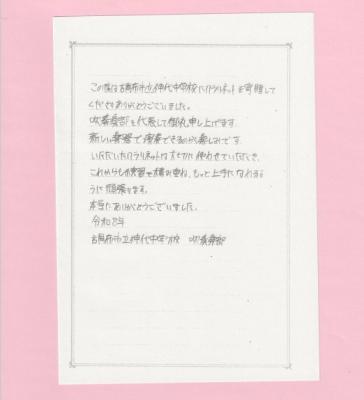 この度は調布市立神代中学校にクラリネットを寄贈して
くださりありがとうございました。
吹奏楽部を代表して御礼申し上げます。
新しい楽器で演奏できるのが楽しみです。
いただいたクラリネットは大切に使わせていただき、
これからも練習を積み重ね、もっと上手になれるよ
うに頑張ります。
本当にありがとうございました。
令和8年
調布市立神代中学校 吹奏楽部